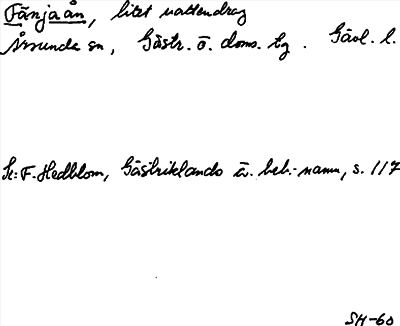 Fänjaån, litet vattendrag
Årsunda sn, Gästr. ö. doms. tg. Gävl. l.
Se: F. Hedblom, Gästriklands ä. beb.-namn, s. 117
SH-60